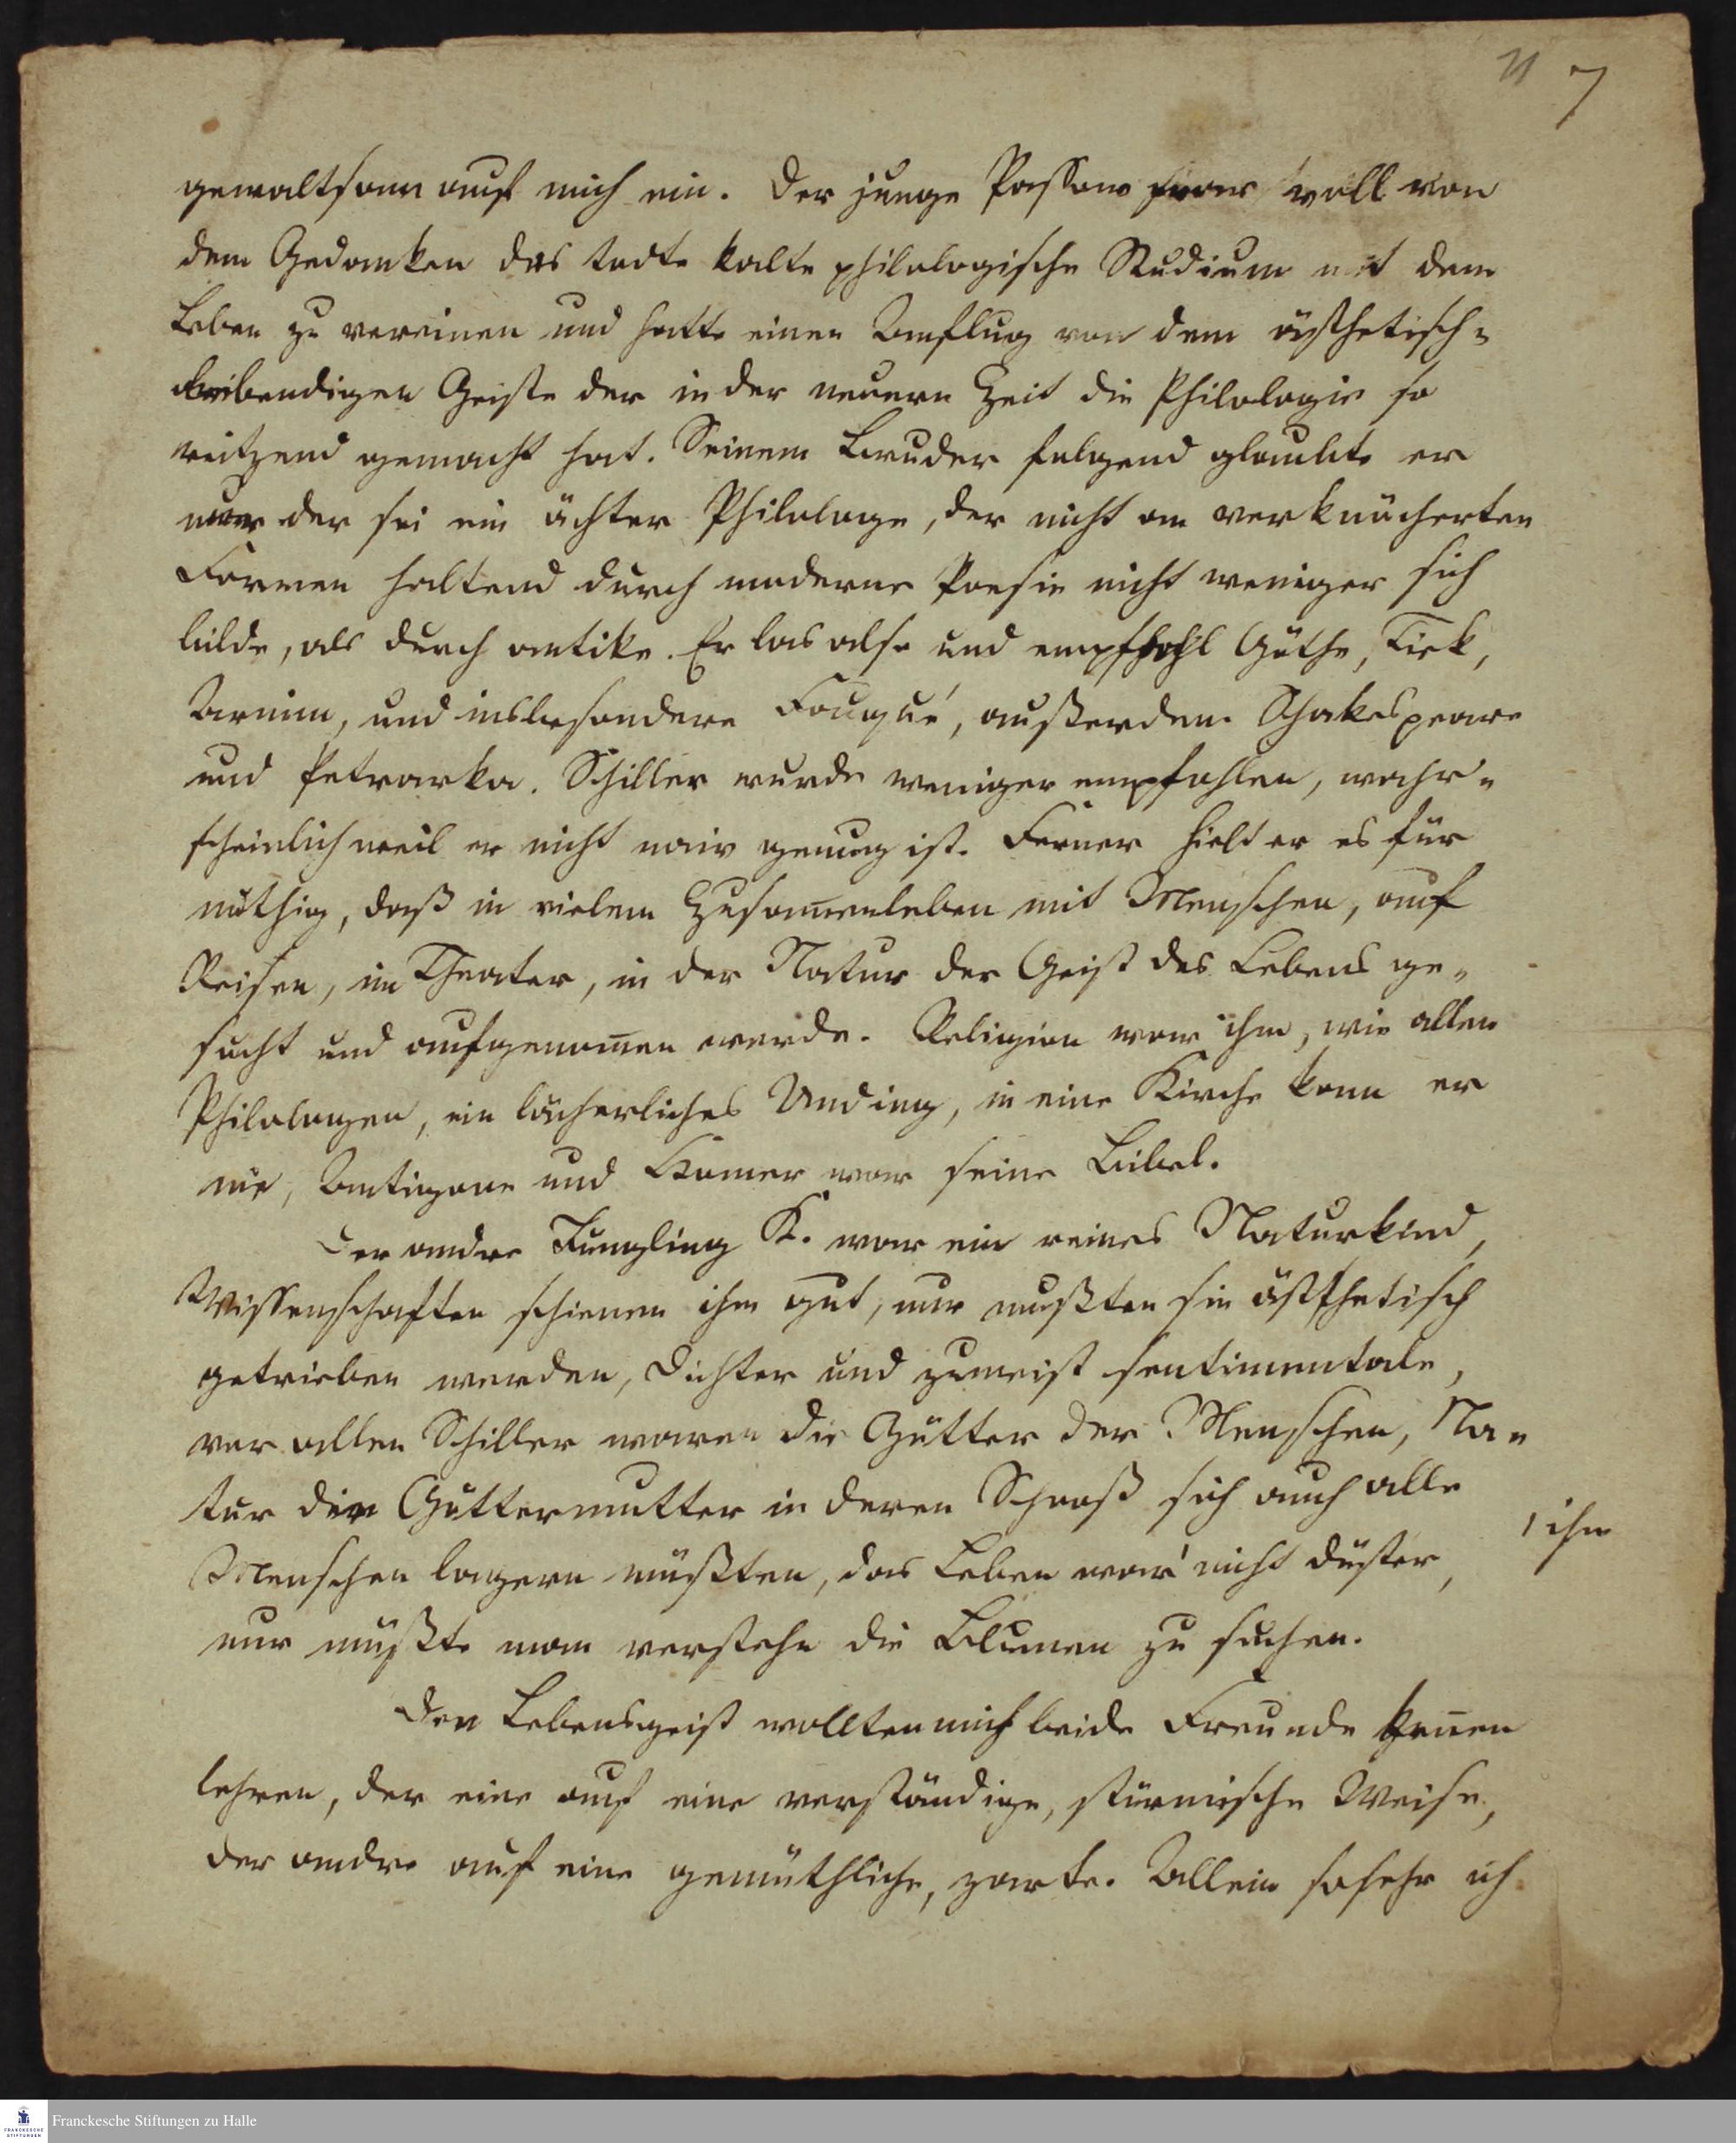 7
gewaltsam auf mich ein. Der junge Passow war voll von
dem Gedanken das todte kalte philologische Studium mit dem
Leben zu vereinen und hatte einen Anflug von dem ästhetisch-
lebendigen Geiste der in der neuern Zeit die Philologie so
reitzend gemacht hat. Seinem Bruder folgend glaubte er
nur der sei ein ächter Philologe, der nicht an verknöcherten
Formen haltend durch moderne Poesie nicht weniger sich
bilde, als durch antike. Er las also und empfohl Göthe, Tiek,
Arnim, und insbesondere Fouqué, außerdem Schakespeare
und Petrarka. Schiller wurde weniger empfohlen, wahr-
scheinlich weil er nicht naiv genug ist. Ferner hielt er es für
nöthig, daß in vielem Zusam̅enleben mit Menschen, auf
Reisen, im Theater, in der Natur der Geist des Lebens ge-
sucht und aufgenom̅en werde. Religion war ihm, wie allen
Philologen, ein lächerliches Unding, in eine Kirche kam er
nie, Antigone und Homer war seine Bibel.
Der andre Jüngling K. war ein reines Naturkind,
Wissenschaften schienen ihm gut, nur mußten sie ästhetisch
getrieben werden, Dichter und zumeist sentimentale,
vor allen Schiller waren die Götter der Menschen, Na-
tur die Göttermutter in deren Schooß sich auch alle
Menschen lagern müßten, das Leben war nicht düster,
ihm
nur müßte man verstehn die Blumen zu suchen.
Den Lebensgeist wollten mich beide Freunde ken̅en
lehren, der eine auf eine verständige, stürmische Weise,
der andre auf eine gemüthliche, zarte. Allein sosehr ich
Franckesche Stiftungen zu Halle
FRANCKESCHE
STIFTUNGEN